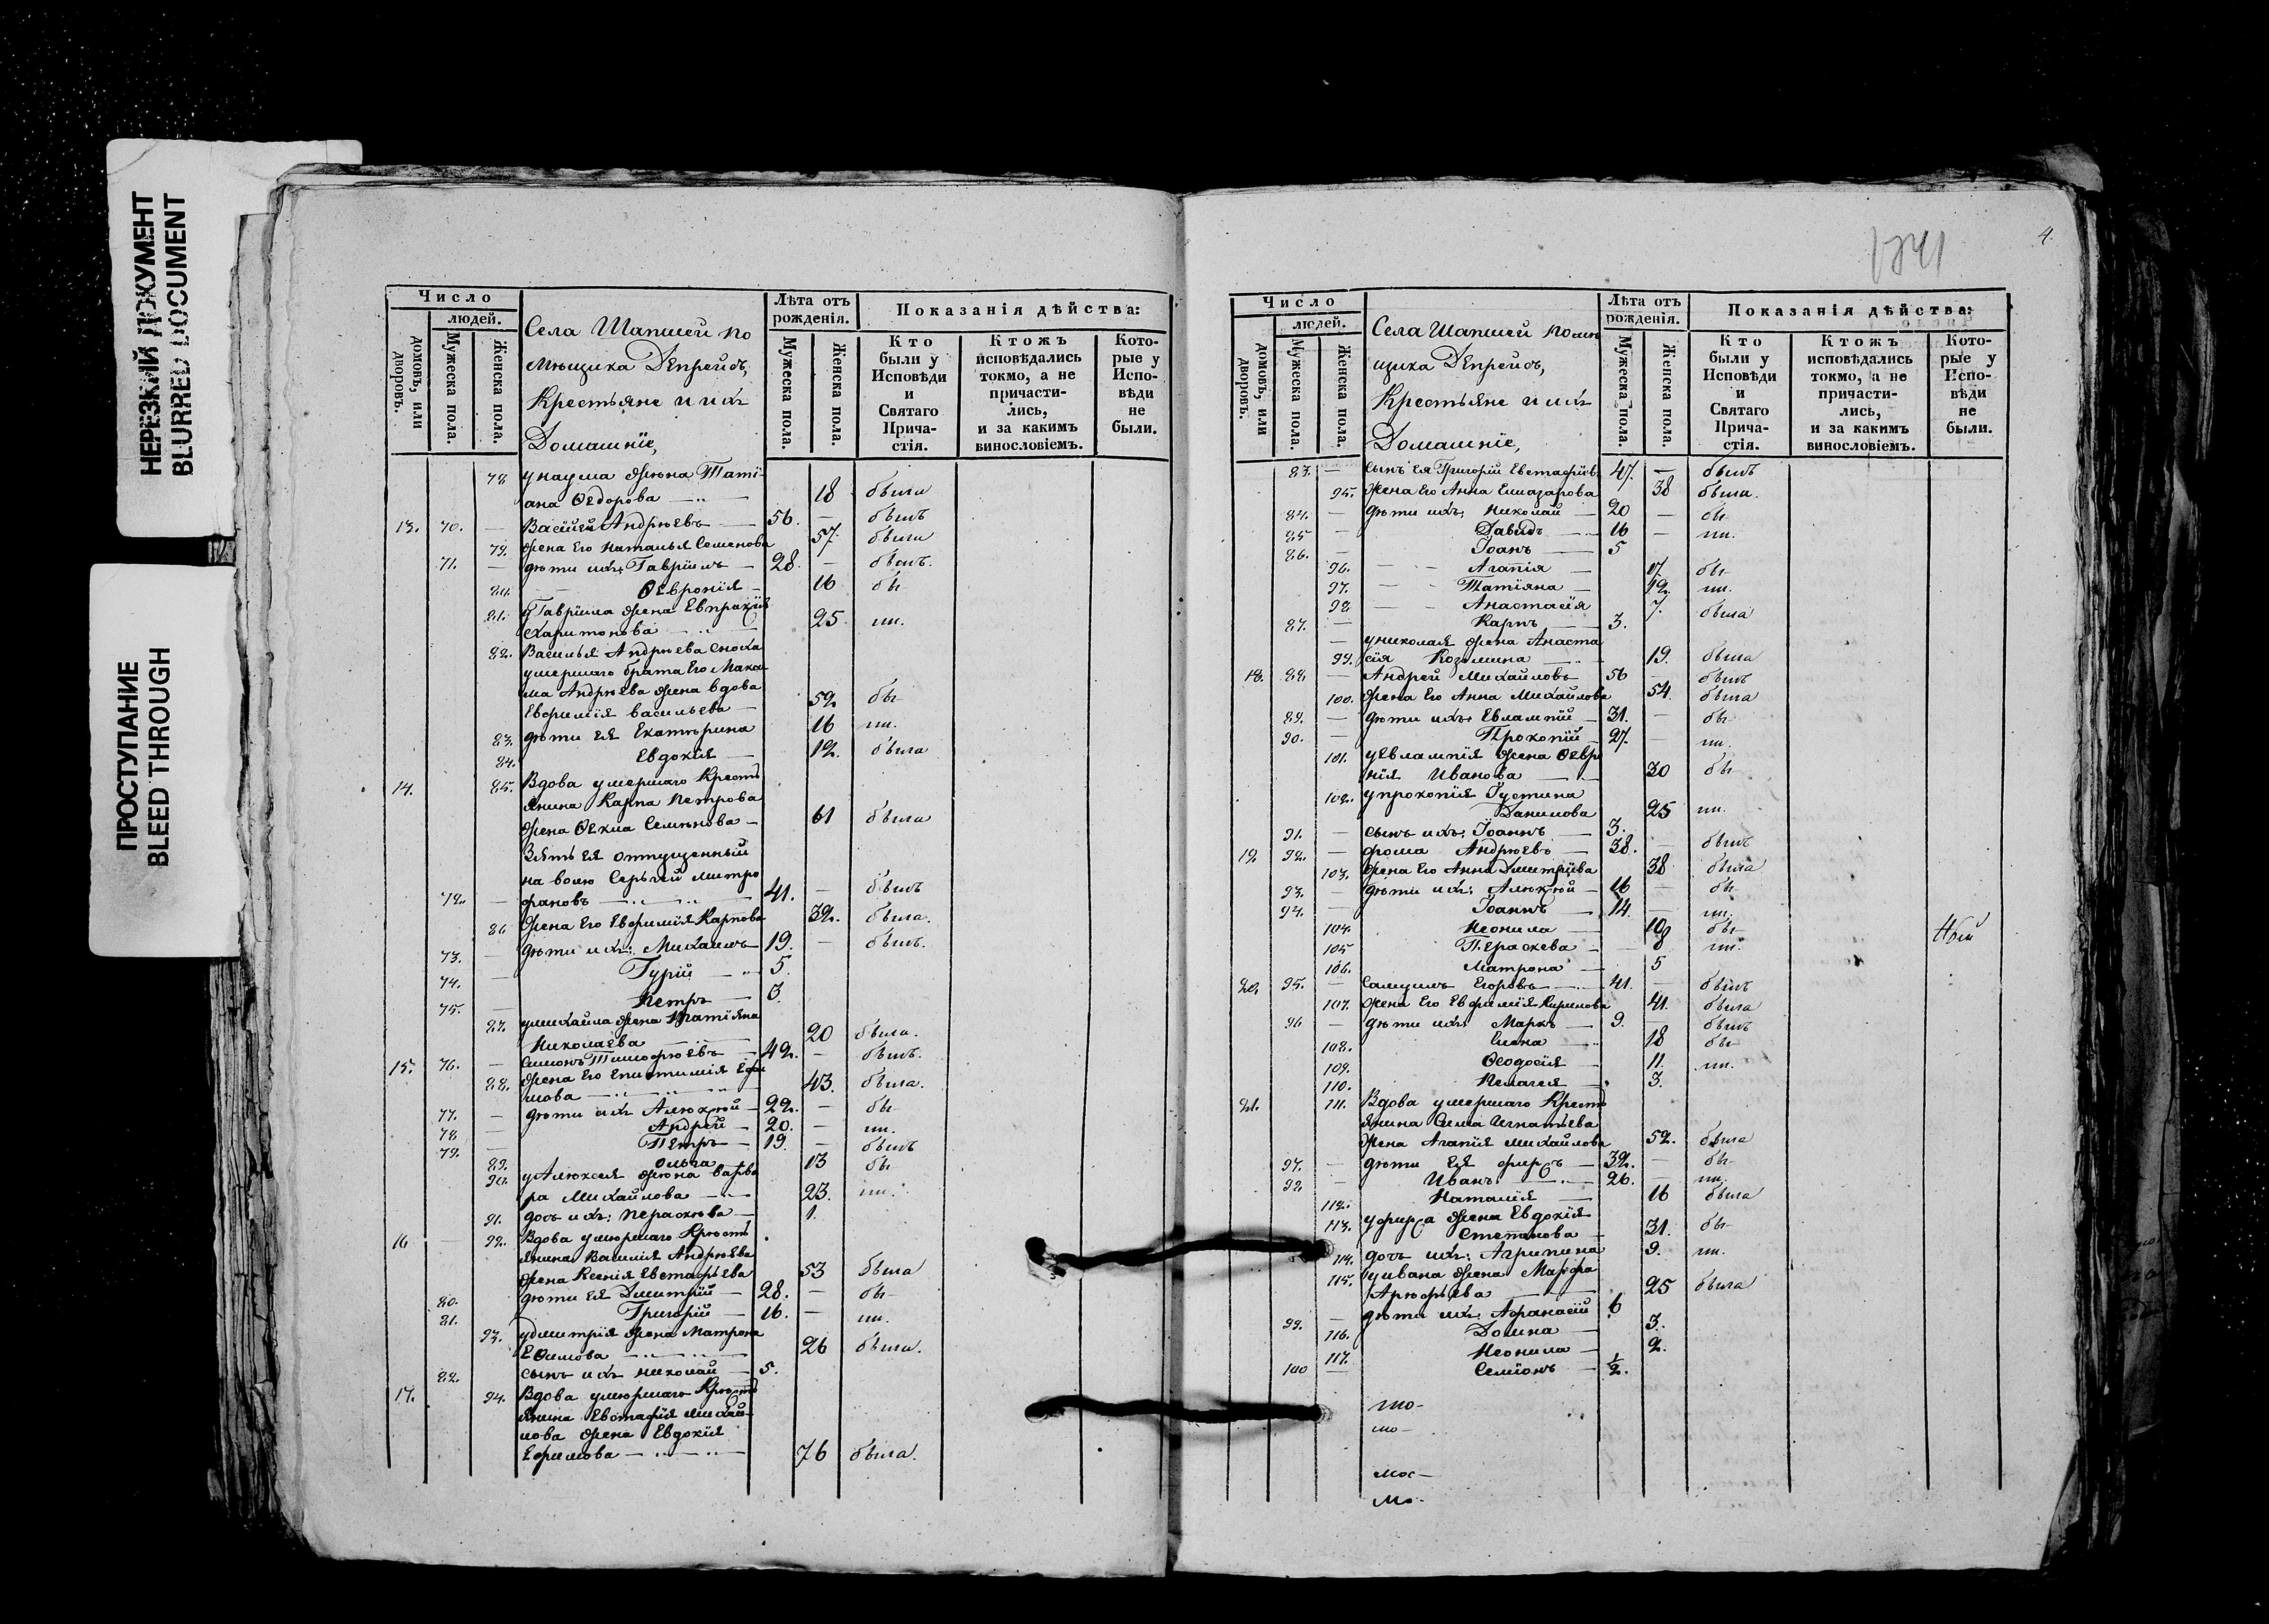 НЕРЕЗКИЙ ДОКУМЕНТ
BLURRED DOCUMENT
ПРОСТУПАНИЕ
BLEED THROUGH
Число
людей.
домовъ, или дворовъ.
Мужеска пола.
Женска пола.
Села Шапшей по
мѣщика Депрейсъ,
Крестьяне и ихъ
Домашніе,
Лѣта отъ рожденія.
Мужеска пола.
Женска пола.
Показанія дѣйства:
Кто были у Исповѣди и Святаго Прича-стія.
Ктожъ исповѣдались токмо, а не причасти-лись, и за какимъ винословіемъ.
Кото-рые у Испо-вѣди не были.
78 у наума жена Тати-
ана Ѳедорова 18 была
13. 70. — Васілей Андрѣевъ — 56. — былъ
79. жена Его Наталья Семенова 57. была
71. — дѣти ихъ: Гаврiилъ — 28. — былъ.
80. Ѳевронія — 16 бы
81. у Гавріила жена Евпраксія
Харитонова 25. ла.
82. Василья Андрѣева сноха
умершаго брата Его Макси
ма Андрѣева жена вдова
Евфимія васильева — 52 бы
83. дѣти ея Екатерина 16 ла.
84. Евдокія — 12. была
14. 85. Вдова умершаго Крестъ
янина Карпа Петрова
жена Ѳекла Семенова — 61 была
Зять ея отпущенный
на волю Сергѣй митро
72. — фановъ 41. — былъ
86 жена Его Евфимія Карпова 32. была.
73. — дѣти ихъ: Михаилъ 19. — былъ.
74. — Гурій 5.
75. — Петръ — 3.
87. у михаила жена Татіяна
Николаева 20 была.
15. 76. — Симонъ Тимофѣевъ — 42. — былъ.
88. жена Его Епистимія Ефи
мова 43. была.
77. — дѣти ихъ Алексѣй — 22. — бы
78 — Андрей — 20. — ли.
79. — Петръ — 19. — былъ
89. Ольга 13 бы
90. у Алексея жена Варва
ра Михайлова 23. ла.
91. дочь ихъ: Параскева — 1.
16 — 92. Вдова умершаго Крестъ
янина Василія Андрѣева
жена Ксенія Евстафьева 53 была
80. дѣти ея Дмитрій — 28. — бы
81. Григорій — 16. — ли.
93. у дмитрія жена Матрона
26 была.
82. сынъ ихъ николай — 5.
17. 94. Вдова умершаго Крестъ
янина Евстафія михай-
лова жена Евдокія
Ефимова 76 была.
4.
Число
людей.
домовъ, или дворовъ.
Мужеска пола.
Женска пола.
Села Шапшей помѣ
щика Депрейсъ,
Крестьяне и ихъ
Домашніе,
Лѣта отъ рожденія.
Мужеска пола.
Женска пола.
Показанія дѣйства:
Кто были у Исповѣди и Святаго Прича-стія.
Ктожъ исповѣдались токмо, а не причасти-лись, и за какимъ винословіемъ.
Кото-рые у Испо-вѣди не были.
83. — сынъ ея Григорій Евстафіевъ 47. — былъ
95. жена Его Анна Елиазарова 38 была.
84. — дѣти ихъ: Николай — 20 — бы
85 — Давидъ 16 — ли.
86. — Іоанъ — 5
96. — Агапія — 17. бы
97. — Татіяна — 12. ла.
98 — Анастасія 7. была
87. — Карпъ — 3.
у николая жена Анаста
99. сія Козьмина 19. была
18. 88. — Андрей Михайловъ 56 — былъ
100. жена Его Анна Михайлова 54. была
89. — дѣти ихъ: Евлампій — 31. — бы
90. — Прокопій — 27. — ли.
101. у Евлампія жена Ѳевро
нія Иванова 30 бы
102. у прокопія Густина
Данилова 25 ла.
91. — сынъ ихъ: Іоаннъ — 3.
19. 92. — фома Андрѣевъ — 38. былъ
103. жена Его Анна Дмитріева 38 была
93. — дѣти ихъ: Алексѣй — 16 — бы
94. — Іоаннъ — 14. — ли.
104. Неонила — 10 бы
105 Параскева — 8 ла.
106. Матрона — 5
20. 95. — Самуилъ Егоровъ 41. — былъ
107. жена Его Евфимія Кирилова 41. была
96 — дѣти ихъ Маркъ — 9. былъ
108. Елена 18 бы
109. Ѳеодосія — 11. ла.
110. Пелагея — 3.
21. 111. Вдова умершаго Крестъ
янина Силы Игнатьева
жена Агапія михайлова 52. была
97. — дѣти ея фирсъ — 32. — бы
98 — Иванъ 26. — ли.
112. Наталія — 16 была
113. у фирса жена Евдокія
Степанова — 31. бы
114. дочь ихъ: Агрипина 9. ла.
115. у ивана жена Марфа
Арефьева 25 была
99. — дѣти ихъ: Афанасій 6
116. Домна — 3.
117. Неонила — 2.
100 — Семіонъ — 1/2.
мо-
мо-
мос-
мо-